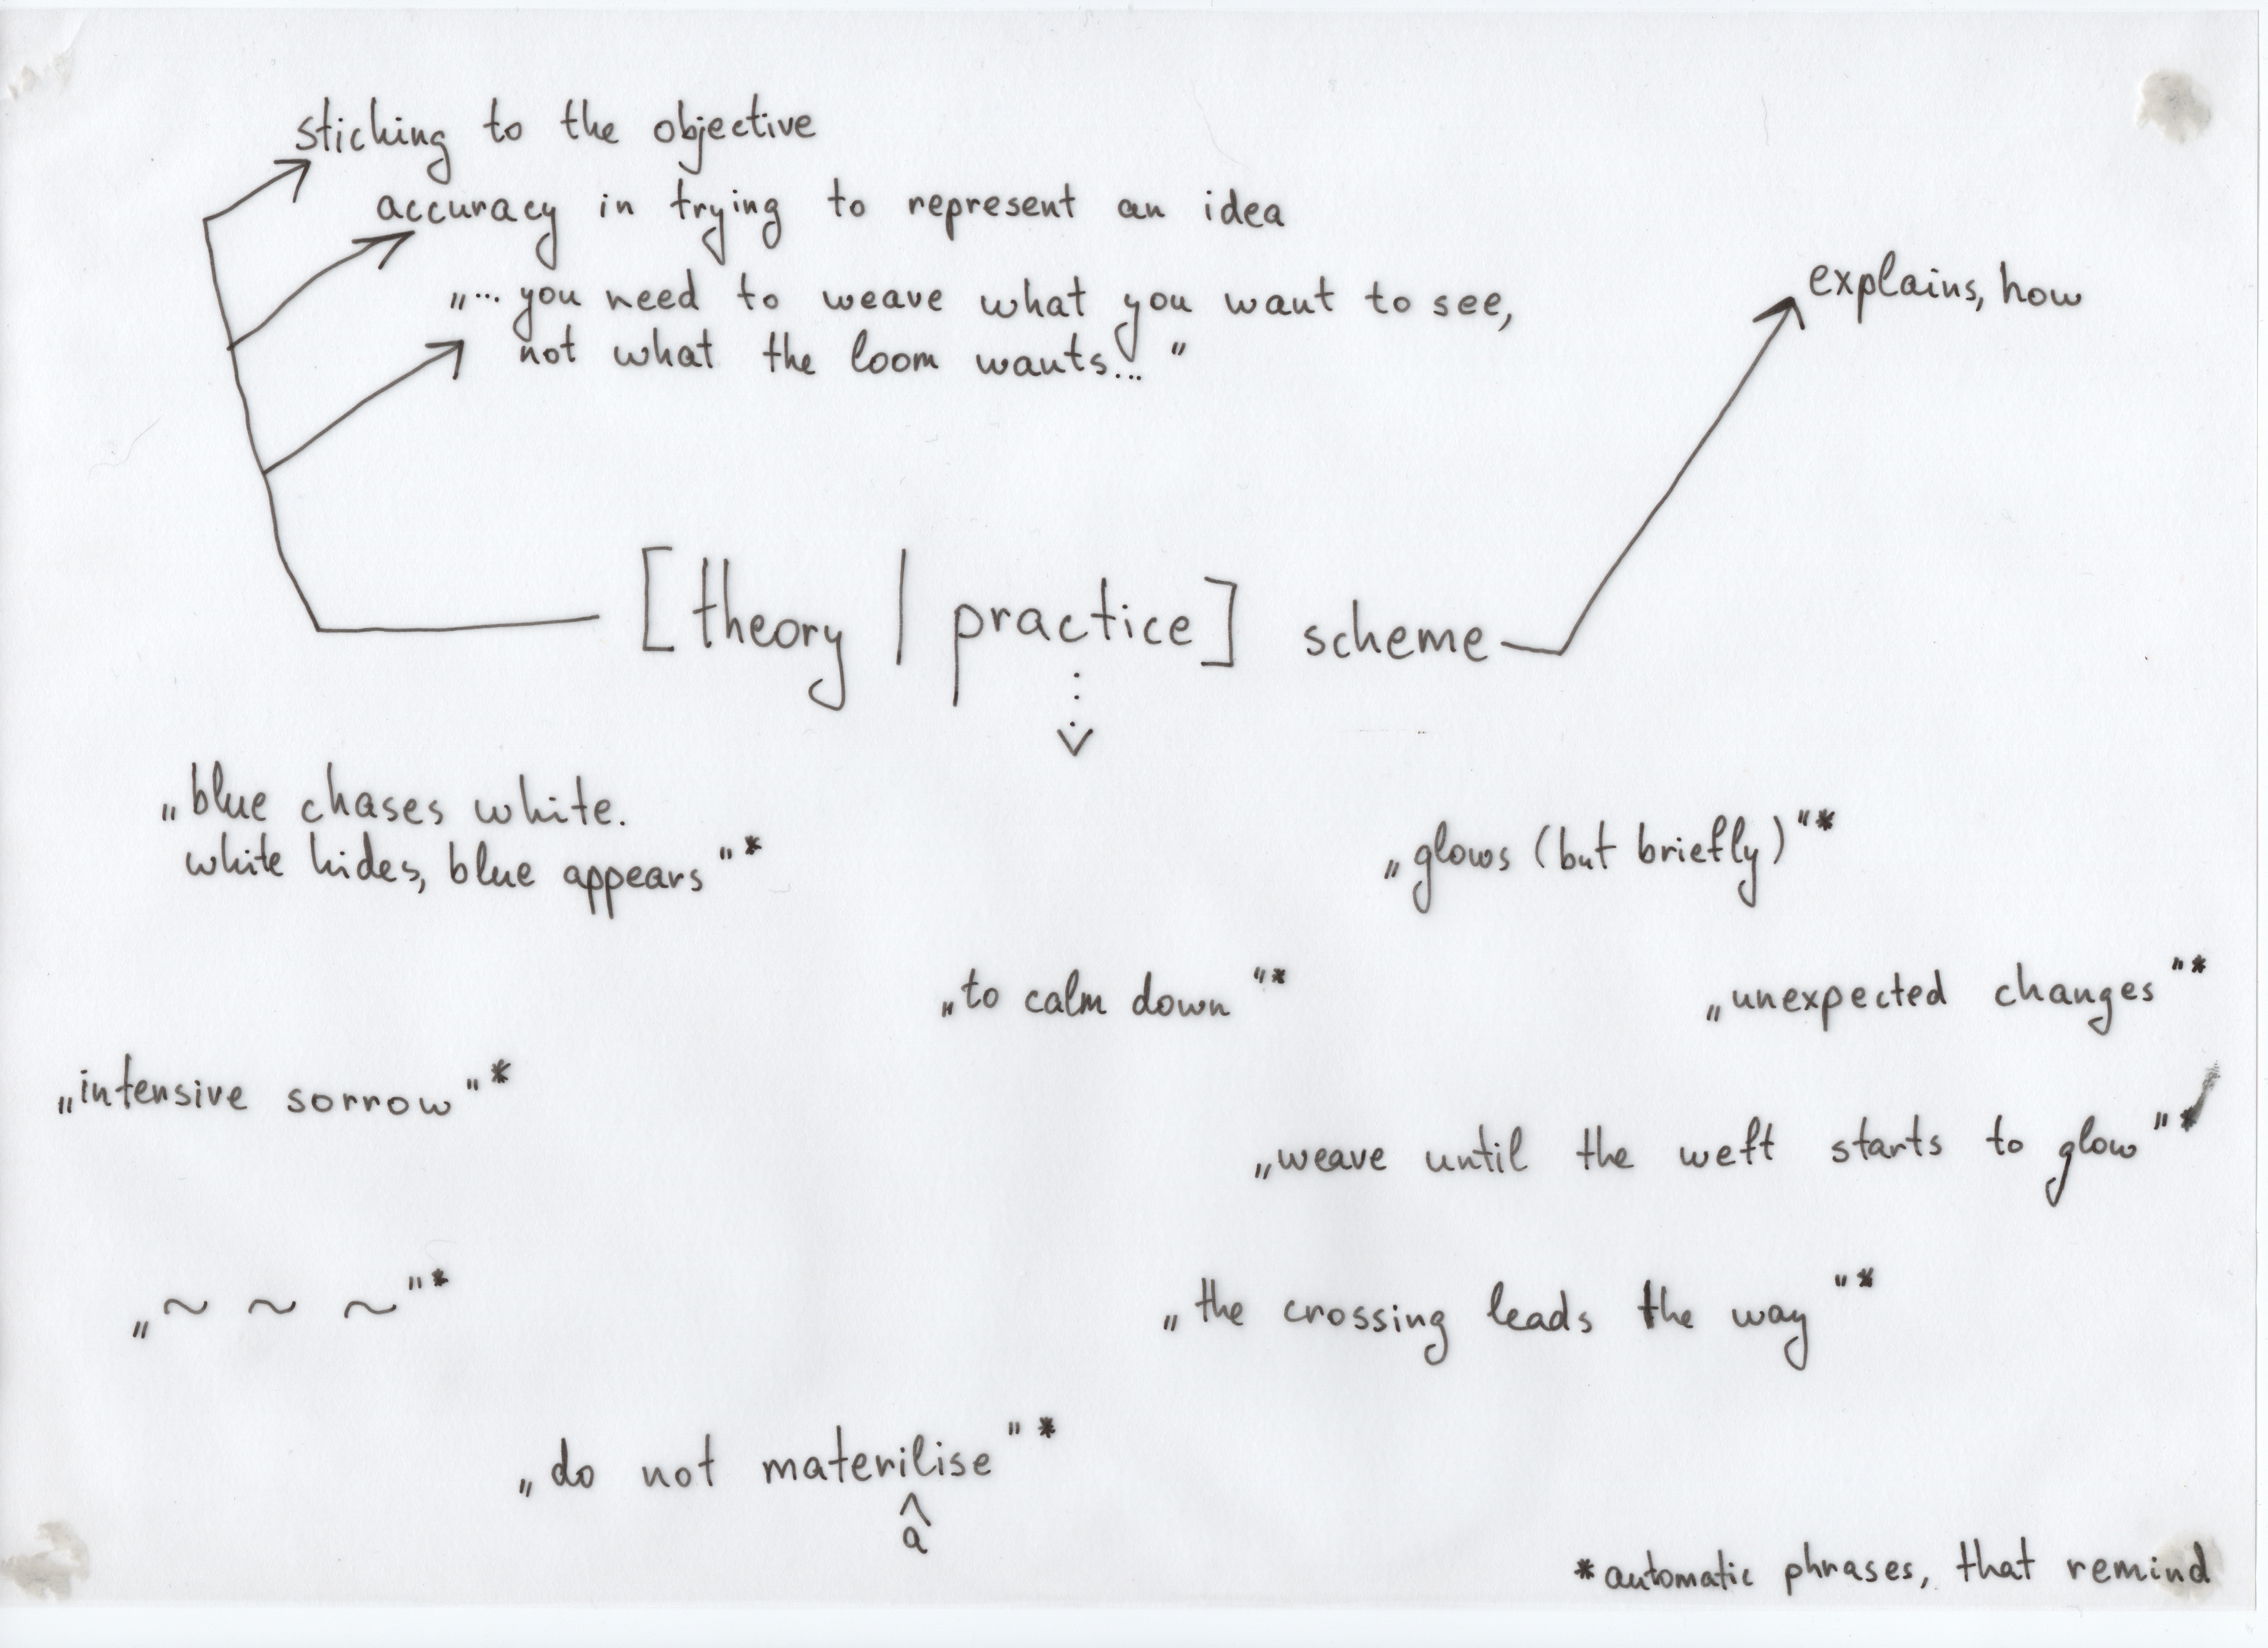 sticking to the objective
accuracy in trying to represent an idea
„... you need to weave what you want to see,
not what the loom wants... "
explains, how
[theory | practice] scheme
„blue chases white.
white hides, blue appears"*
„glows (but briefly)"*
„to calm down"*
„unexpected changes"*
„intensive sorrow"*
„weave until the weft starts to glow"*
„~ ~ ~"*
„the crossing leads the way"*
„do not materilise"*
^
a
*automatic phrases, that remind